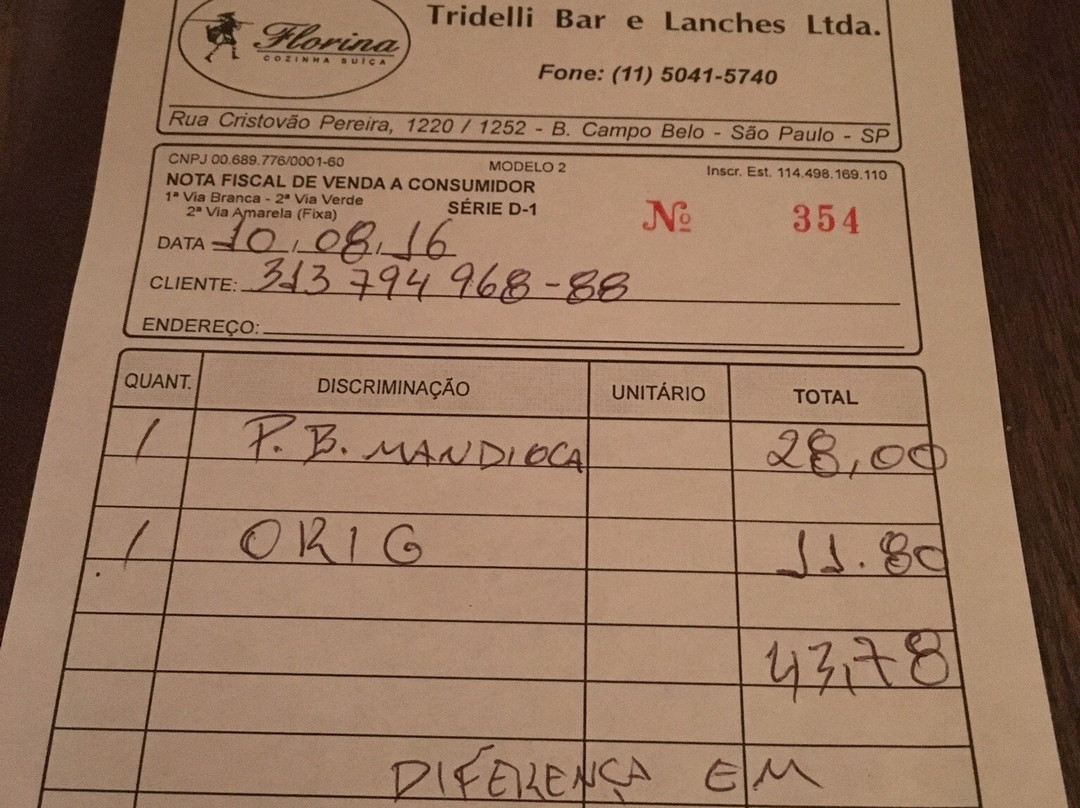 Tridelli Bar e Lanches Ltda.
Florina
COZINHA SUÍÇA
Fone: (11) 5041-5740
Rua Cristovão Pereira, 1220 / 1252 - B. Campo Belo - São Paulo - SP
CNPJ 00.689.776/0001-60 MODELO 2 Inscr. Est. 114.498.169.110
NOTA FISCAL DE VENDA A CONSUMIDOR
1ª Via Branca - 2ª Via Verde SÉRIE D-1 Nº 354
2ª Via Amarela (Fixa)
DATA 10,08,16
CLIENTE: 313 794 968-88
ENDEREÇO:
QUANT. DISCRIMINAÇÃO UNITÁRIO TOTAL
1 P. B. MANDIOCA 28,00
1 ORIG 11.80
43,78
DIFERENÇA EM